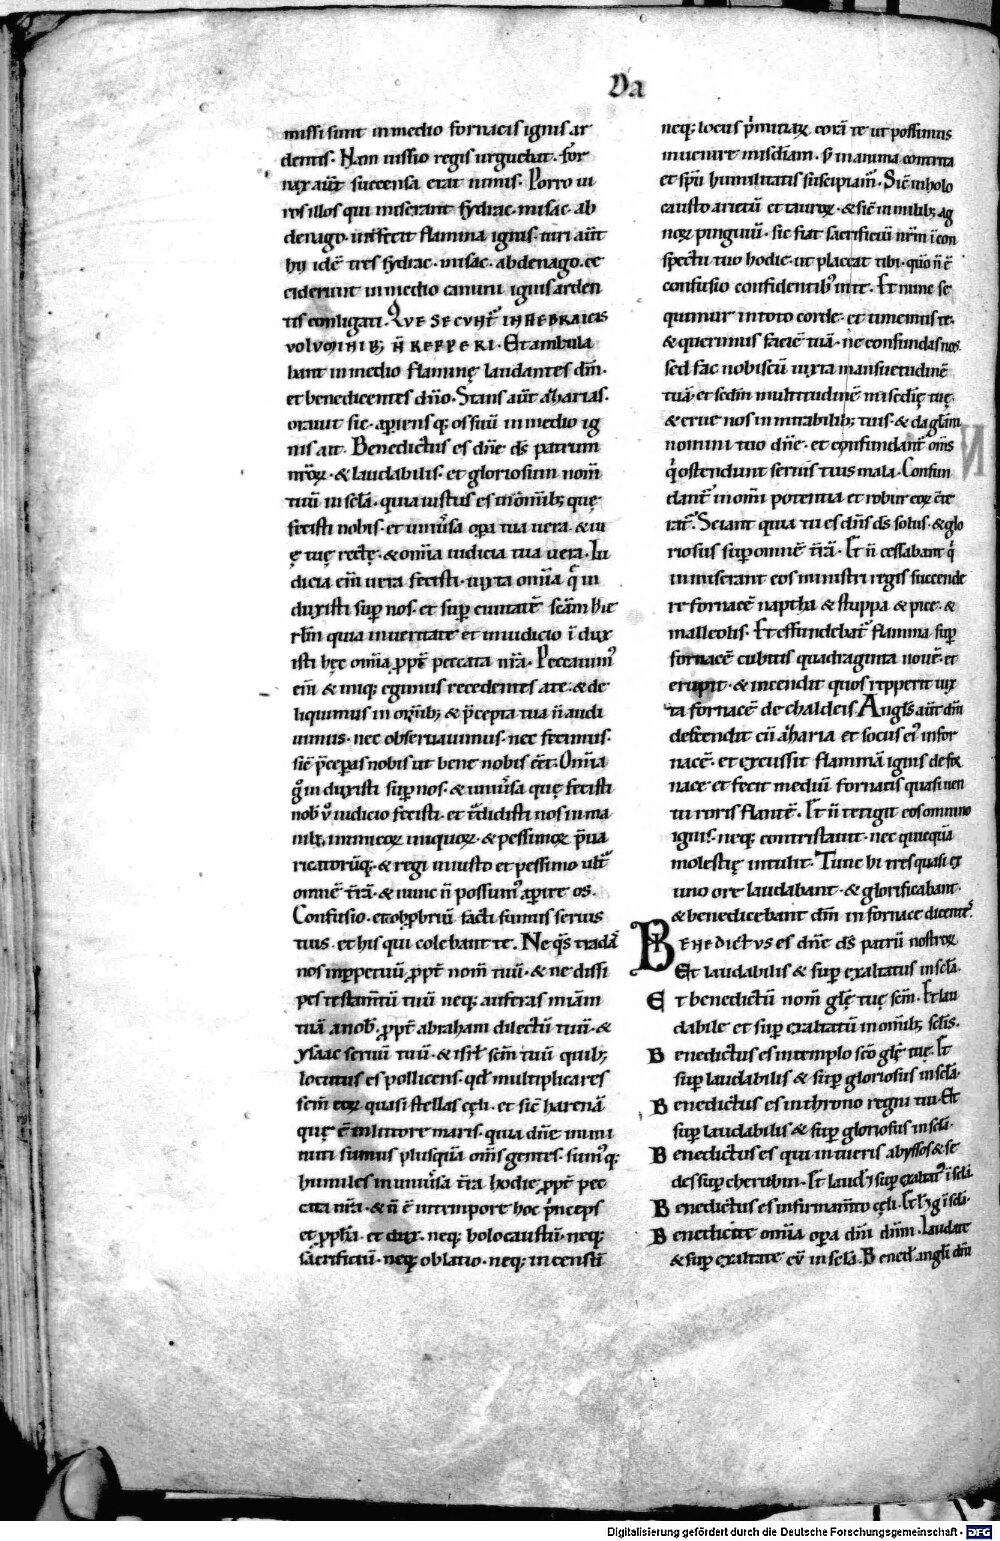 Da
missi sunt in medio fornacis ignis ar
dentis. Nam iussio regis urguebat. for
nax aut̄ succensa erat nimis. Porro ui
ros illos qui miserant sydrac. misac. ab
denago. interfecit flamma ignis. uiri aut̄
hij idē tres sydrac. misac. abdenago. ce
ciderunt in medio camini ignis arden
tis conligati. QVE SECVNT̄ IN HEBRAICIS
VOLVMINIB; N̄ REPPERI. Et ambula
bant in medio flammę laudantes dm̄.
et benedicentes dn̄o. Stans aut̄ azarias.
orauit sic. apiensq; os suū in medio ig
nis ait. Benedictus es dn̄e ds̄ patrum
nr̄oꝝ. & laudabilis. et gloriosum nom̄
tuū in scl̄a. quia iustus es in om̄ib; quę
fecisti nobis. et uniūsa opa tua uera. & ui
ę tuę rectę. & om̄ia iudicia tua uera. Iu
dicia em̄ uera fecisti. iuxta om̄ia q̄ in
duxisti sup nos. et sup ciuitatē scām hie
rl̄m quia in ueritate et in iudicio ī dux
isti hęc om̄ia ppt̄ peccata nr̄a. Peccauim᾽
em̄ & iniq; egimus recedentes a te. & de
liquimus in om̄ib; & p̄cepta tua n̄ audi
uimus. nec obseruauimus. nec fecimus.
sic̄ p̄cepas nobis ut bene nobis eēt. Om̄ia
g̊ in duxisti sup nos. & uniūsa quę fecisti
nob̄ ū iudicio fecisti. et t̄didisti nos in ma
nib; inimicoꝝ iniquoꝝ. & pessimoꝝ p̄ua
ricatorūq;. & regi iniusto et pessimo ult̄
omnē t̄rā. & nunc n̄ possum᾽ apire os.
Confusio. et obpbriū facti sumus seruis
tuis. et his qui colebant te. Ne qs̄ tradas̄
nos inppetuū ppt̄ nom̄ tuū. & ne dissi
pes testam̄tū tuū neq; auferas miā̄m
tuā a nob̄. ppt̄ abraham dilectū tuū. &
ysaac seruū tuū. & isrl̄ scm̄ tuū quib;
locutus es pollicens. qd̄ multiplicares
sem̄ eoꝝ quasi stellas cęli. et sic̄ harenā
quę ē in littore maris. quia dn̄e inmi
nuti sumus plusquā om̄s gentes. sum᾽q;
humiles in uniūsa t̄ra hodie ppt̄ pec
cata nr̄a. & n̄ ē in tempore hoc p̄nceps
et ppha̅. et dux. neq; holocaustū. neq;
sacrificiū. neq; oblatio. neq; incensū
neq; locus p̄mitiaꝝ corā te ut possimus
inuenire misc̄diam. s; in anima contrita
et spū humilitatis suscipiam᾽. Sic̄ in holo
causto arietū et tauroꝝ. & sic̄ in milib; ag
noꝝ pinguiū. sic fiat sacrificiū nr̄m ī con
spectu tuo hodie. ut placeat tibi. quō n̄ ē
confusio confidentib᾽ in te. Et nunc se
quimur in toto corde. et timemus te.
& querimus faciē tuā. ne confundas nos.
sed fac nobiscū iuxta mansuetudinē
tuā. et scdm̄ multitudinē misc̄dię tuę.
& erue nos in mirabilib; tuis. & da gl̄am
nomini tuo dn̄e. et confundant᾽ om̄s
q̄ ostendunt seruis tuis mala. Confun
dant᾽ in om̄i potentia et robur eoꝝ cte
rat᾽. Sciant quia tu es dn̄s ds̄ solus. & glo
riosus sup omnē t̄rā. Et n̄ cessabant q̄
inmiserant eos ministri regis succende
re fornacē naptha & stuppa & pice. &
malleolis. Et effundebat᾽ flamma sup
fornacē cubitis quadraginta nouē. et
erupit. & incendit quos repperit iux
ta fornacē de chaldeis. Angls̄ aut̄ dn̄i
descendit cū azaria et socus ei᾽ in for
nacē. et excussit flammā ignis de for
nace et fecit mediū fornacis quasi uen
tū roris flantē. Et n̄ tetigit eos omnino
ignis. neq; contristauit. nec quicquā
molestię intulit. Tunc hi tres quasi ex
uno ore laudabant. & glorificabant.
& benedicebant dm̄ in fornace dicentes.
BENEDICTVS es dn̄e ds̄ patrū nostroꝝ
Et laudabilis & sup exaltatus in scl̄a.
Et benedictū nom̄ glę̄ tuę scm̄. Et lau
dabile et sup exaltatū in om̄ib; scl̄is.
Benedictus es in templo scō glę̄ tuę. Et
sup laudabilis & sup gloriosus in scl̄a.
Benedictus es in throno regni tui. Et
sup laudabilis & sup gloriosus in scl̄a.
Benedictus es qui intueris abyssos & se
des sup cherubin. Et laud̄ & sup exaltat᾽ ī scl̄a.
Benedictus es in firmam̄to cęli. Et l & g in scl̄a.
Benedicite om̄ia opa dn̄i dn̄m. Laudate
& sup exaltate eū in scl̄a. Bened̄ angli dn̄i
Digitalisierung gefördert durch die Deutsche Forschungsgemeinschaft - DFG